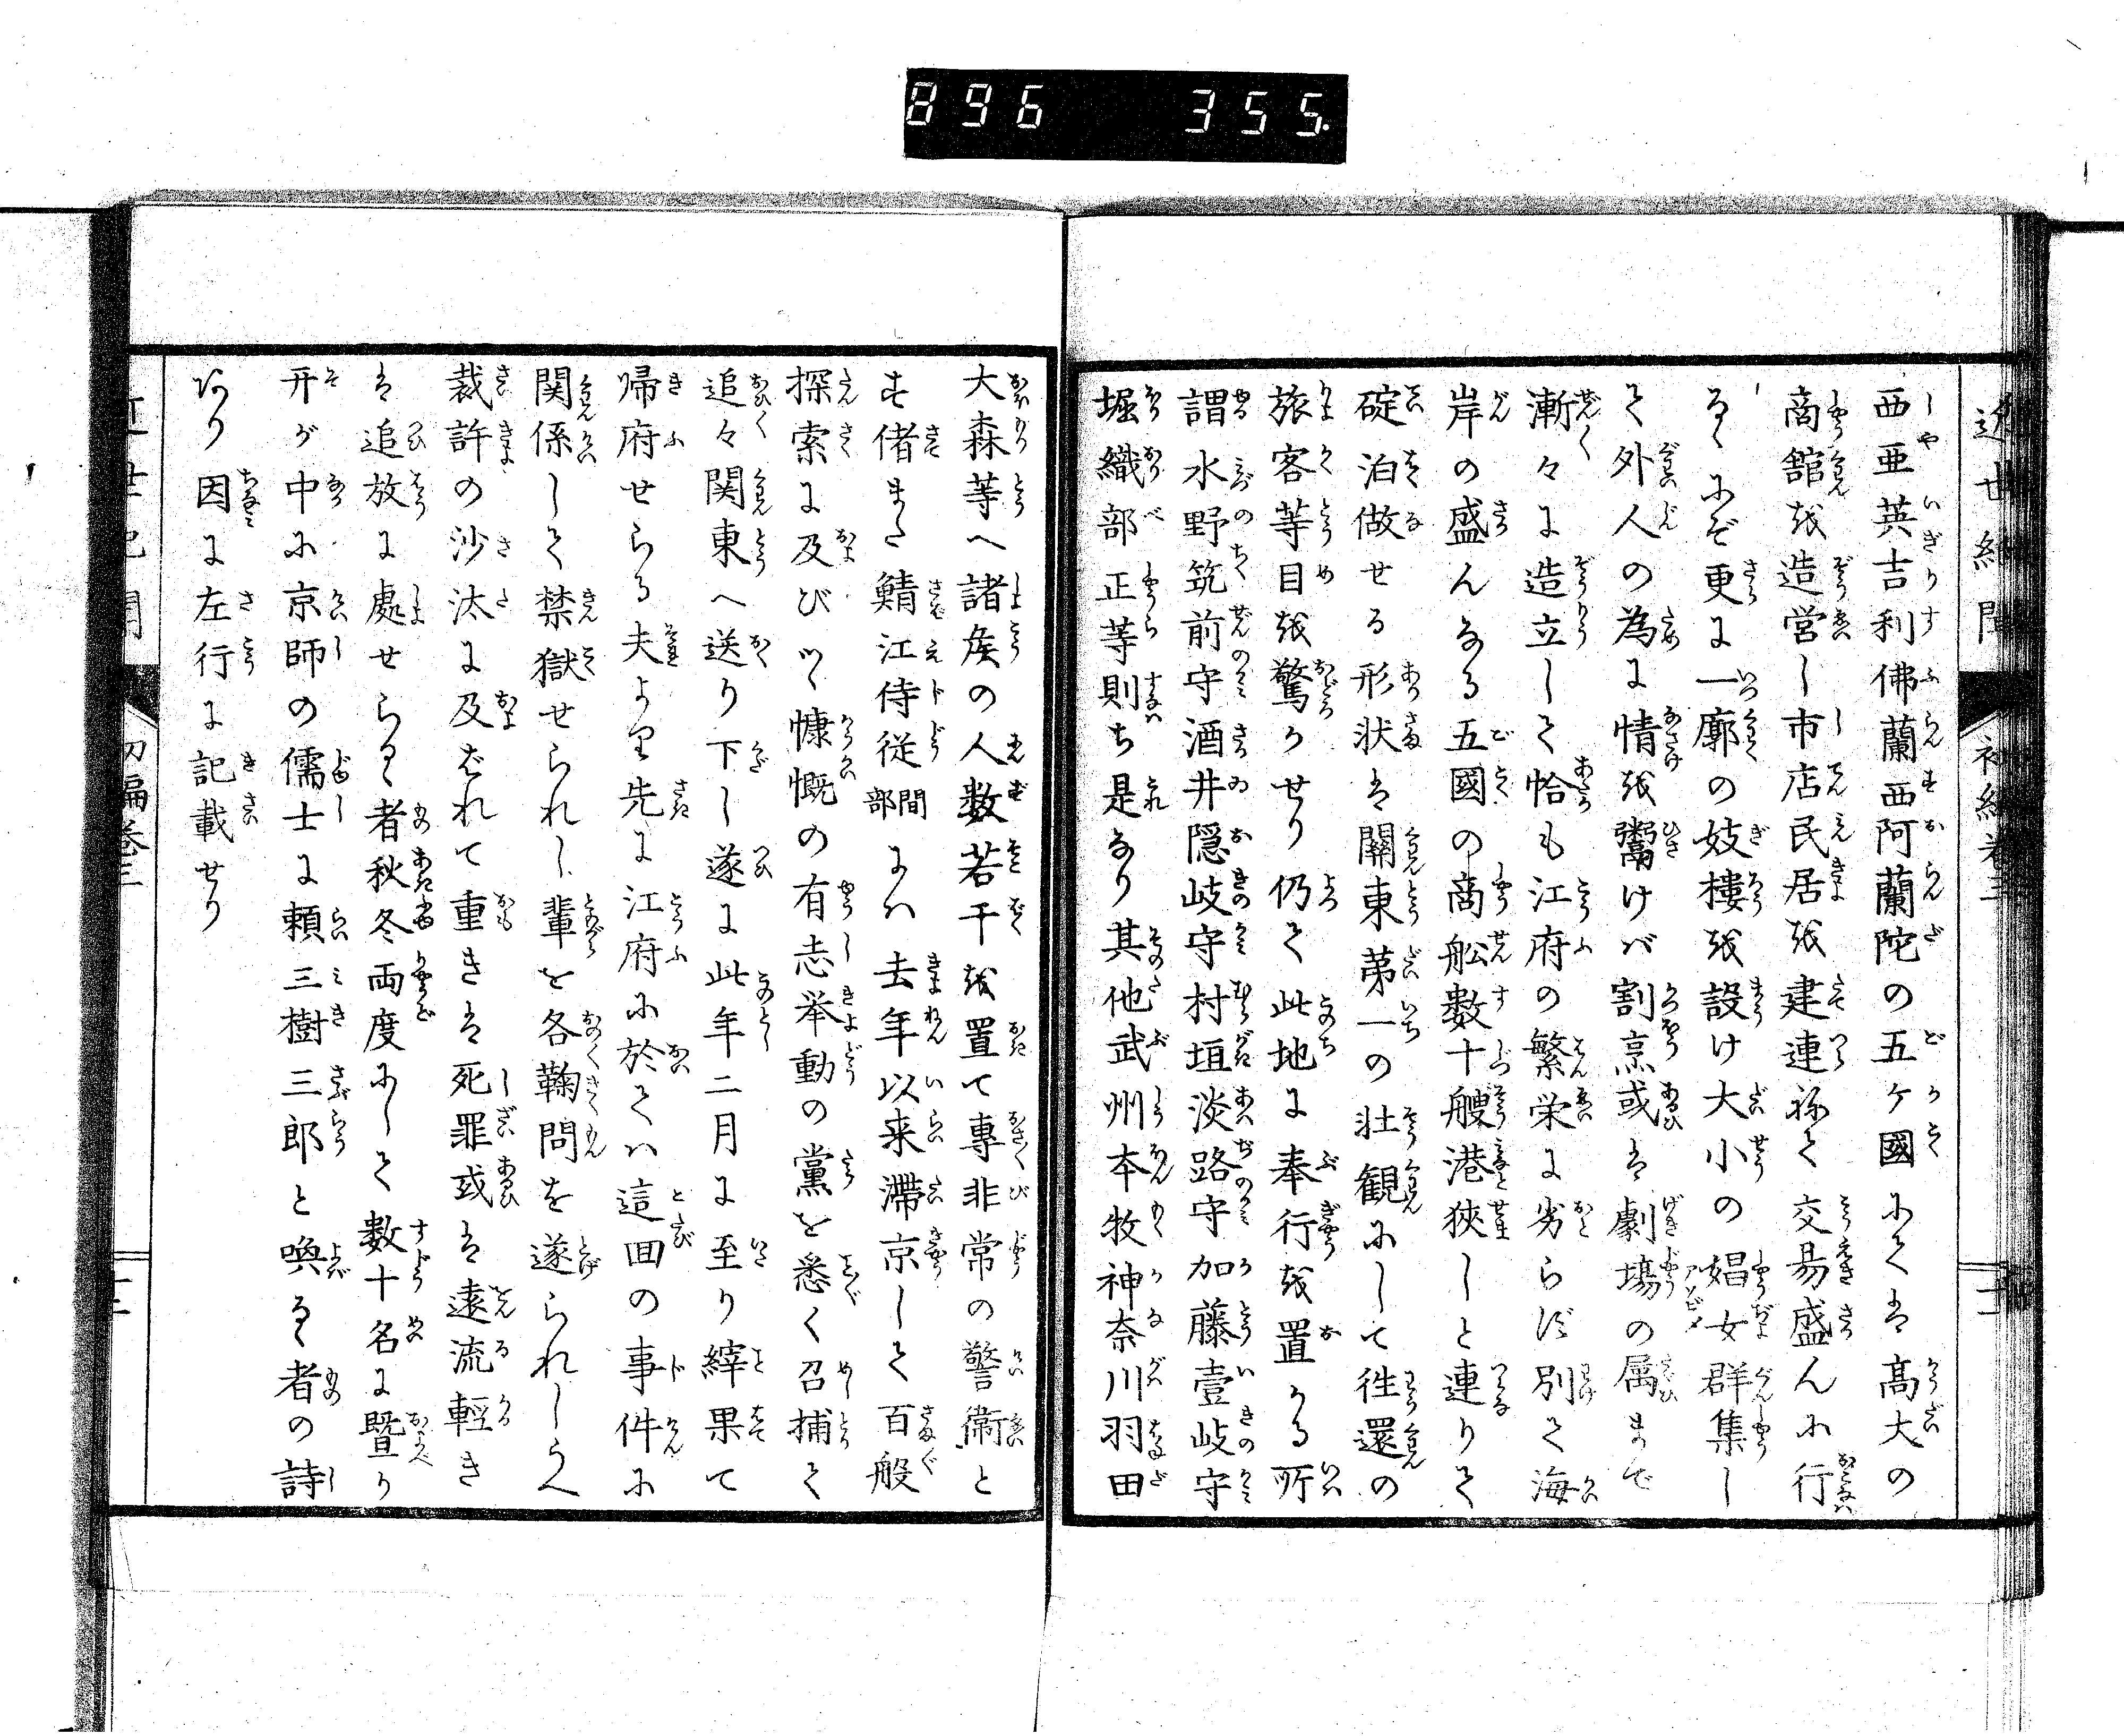 896 355.
近世紀聞 初編巻三 十一
西亜英吉利佛蘭西阿蘭陀の五ヶ國にては高大の
商舘を造営し市店民居を建連ねて交易盛んに行
るゝにぞ更に一廓の妓樓を設け大小の娼女群集し
て外人の為に情を鬻けバ割烹或は劇場の属まで
漸々に造立して恰も江府の繁栄に劣らず別て海
岸の盛んなる五國の商舩数十艘港狹しと連りて
碇泊做せる形状は關東第一の壮観にして徃還の
旅客等目を驚かせり仍て此地に奉行を置かる所
謂水野筑前守酒井隠岐守村垣淡路守加藤壹岐守
堀織部正等則ち是なり其他武州本牧神奈川羽田
大森等へ諸矦の人数若干を置て專非常の警衛と
す偖また鯖江侍従間部にハ去年以来滞京して百般
探索に及びつゝ慷慨の有志挙動の黨を悉く召捕て
追々関東へ送り下し遂に此年二月に至り縡果て
帰府せらる夫より先に江府に於てハ這回の事件に
関係して禁獄せられし輩を各鞠問を遂られしうへ
裁許の沙汰に及ばれて重きは死罪或は遠流輕き
は追放に處せらるゝ者秋冬両度にして数十名に曁り
开が中に京師の儒士に頼三樹三郎と喚るゝ者の詩
あり因に左行に記載せり
近世紀聞 初編巻三